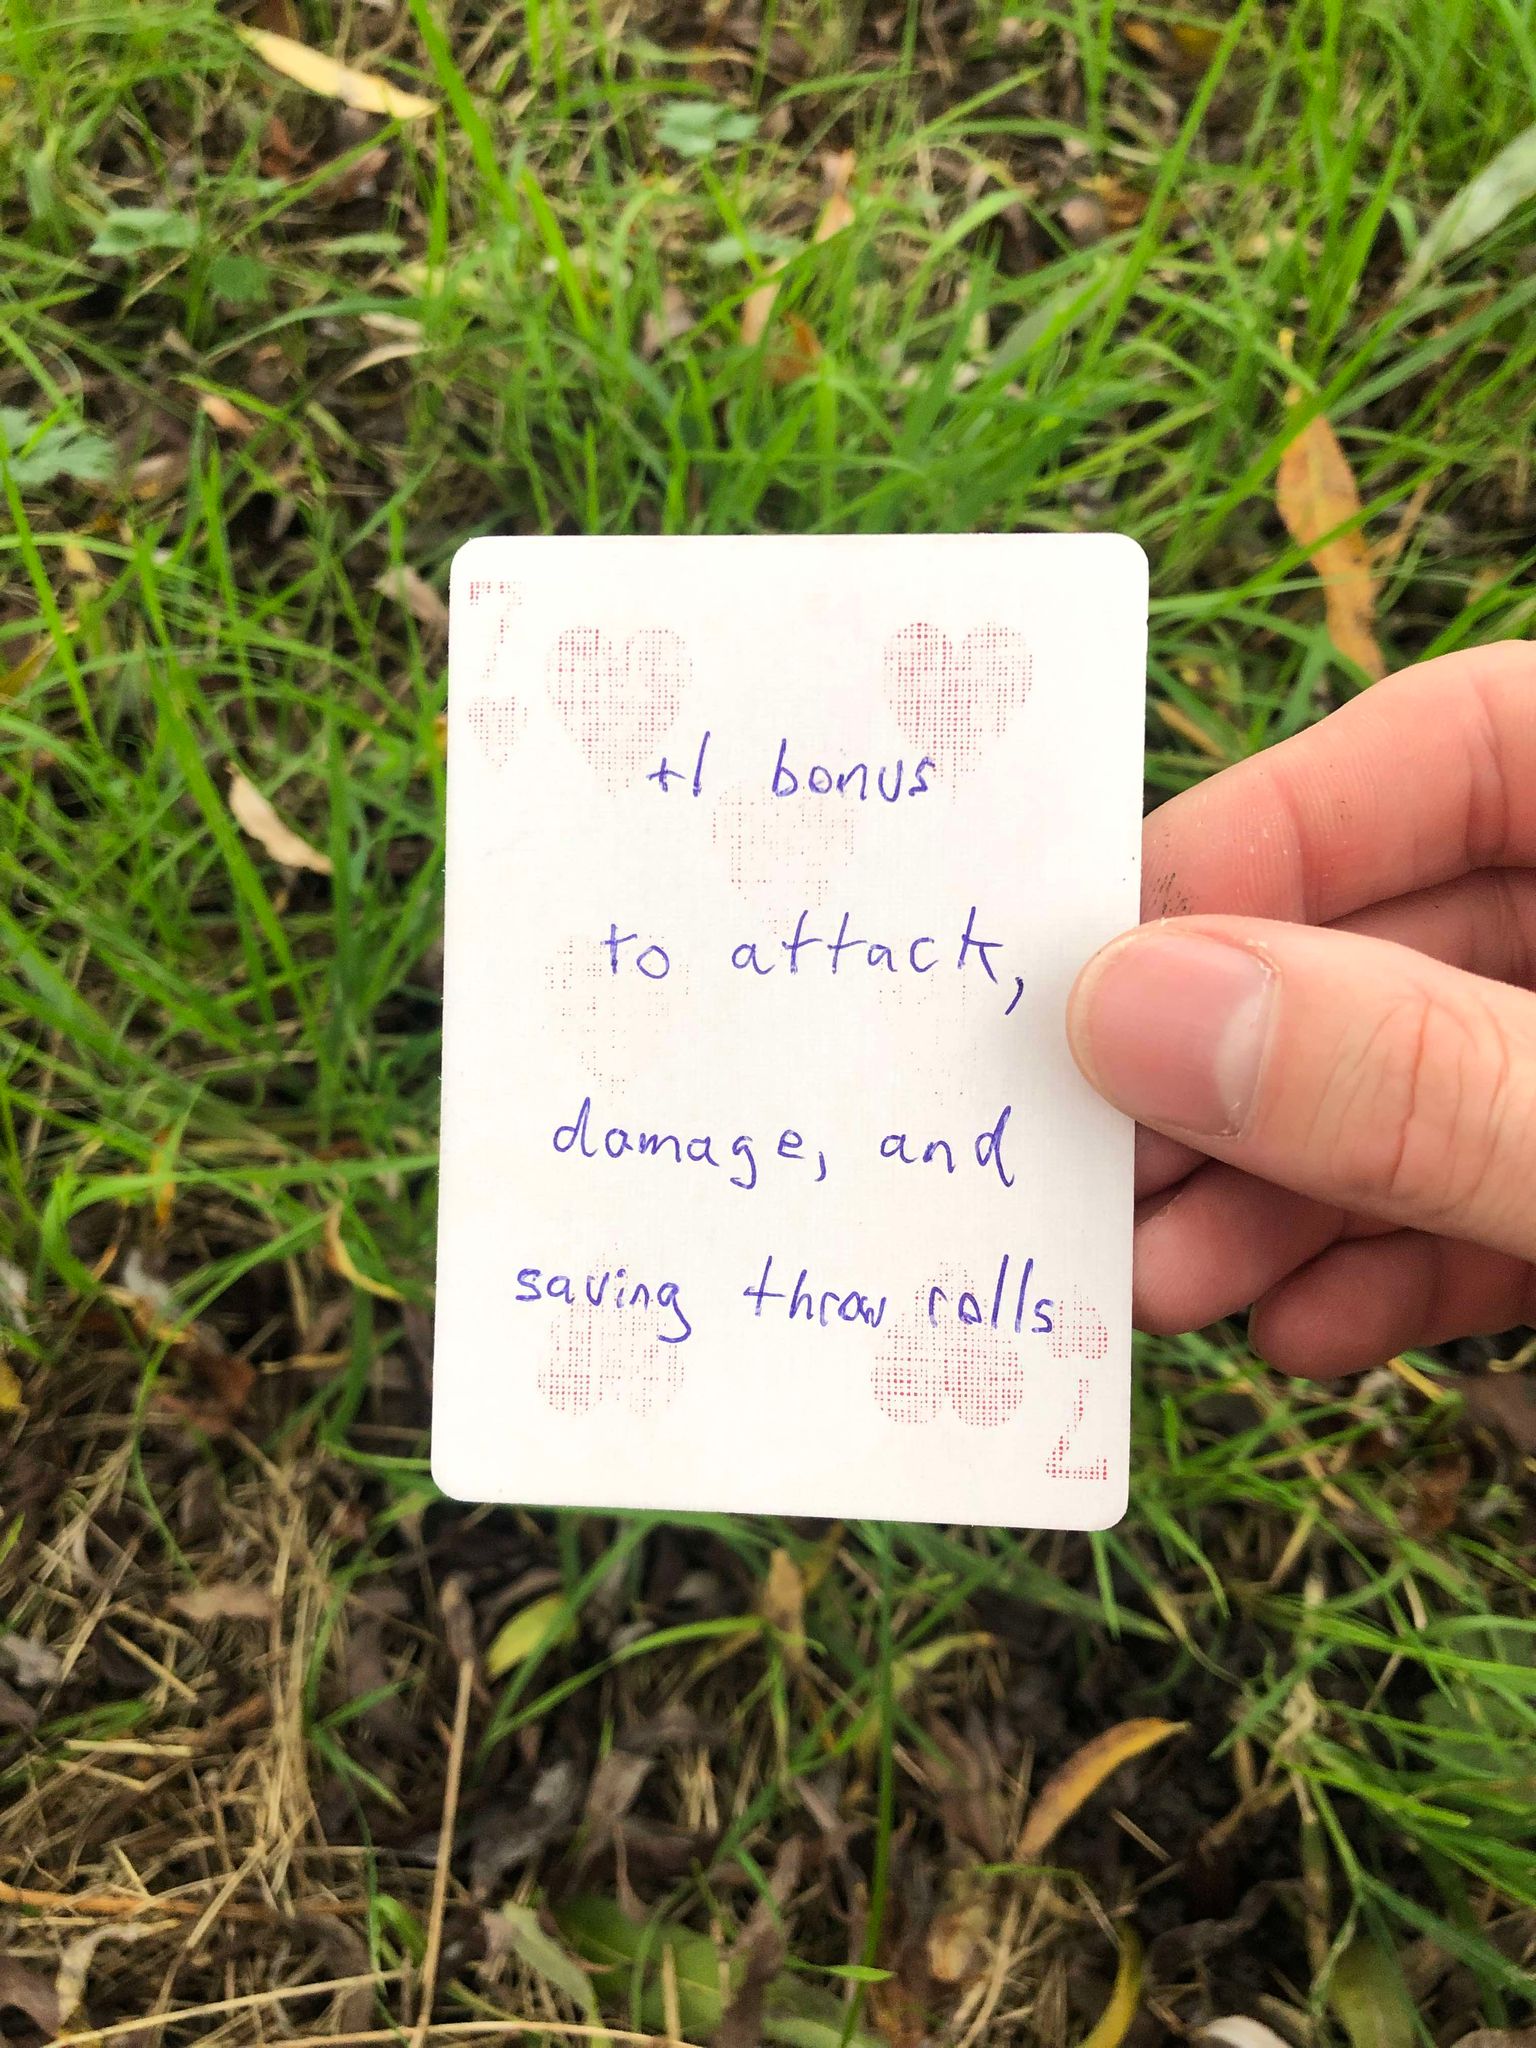 7
+1 bonus
to attack,
damage, and
saving throw rolls
7